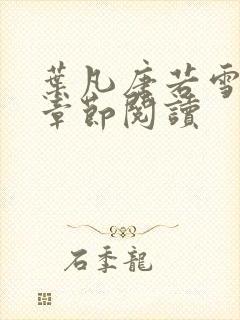 葉凡唐若雪
章節閱讀
石季龍